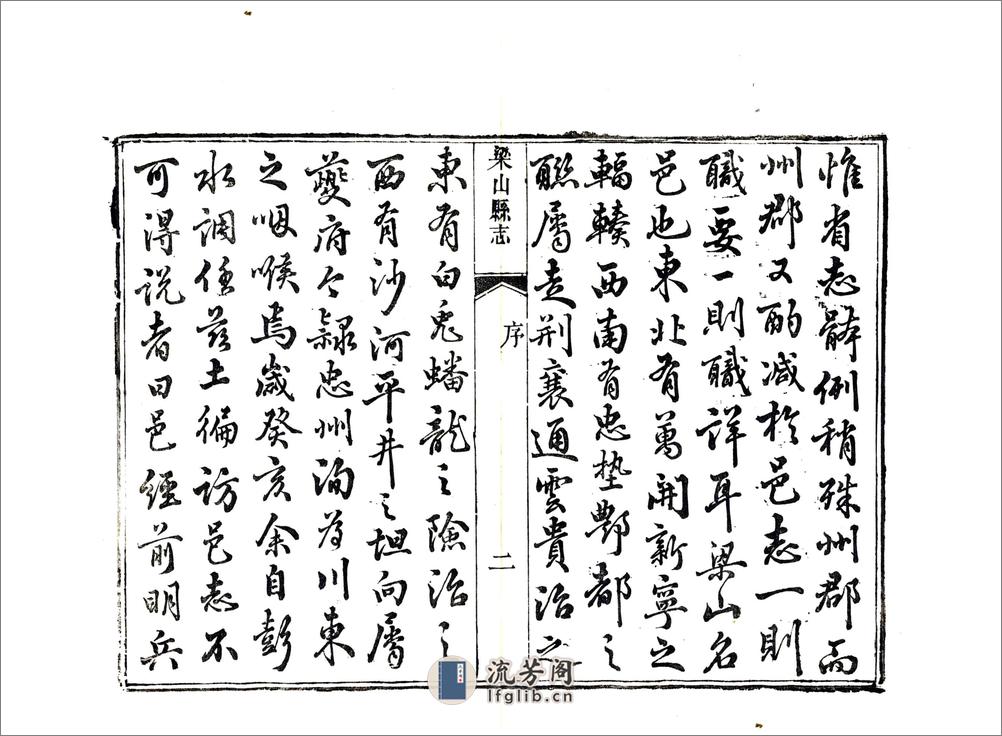 惟省志體例稍殊州郡而
州郡又酌減於邑志一則
職要一則職詳耳梁山名
邑也東北有萬開新寧之
輻轃西南有忠墊酆都之
聯屬走荆襄通雲貴治之
梁山縣志
序
二
東有白兎蟠龍之險治之
西有沙河平井之坦向屬
夔府今隷忠州洵為川東
之咽喉焉歲癸亥余自彭
水調任兹土徧訪邑志不
可得説者曰邑經前明兵
流芳阁
lfglib.cn